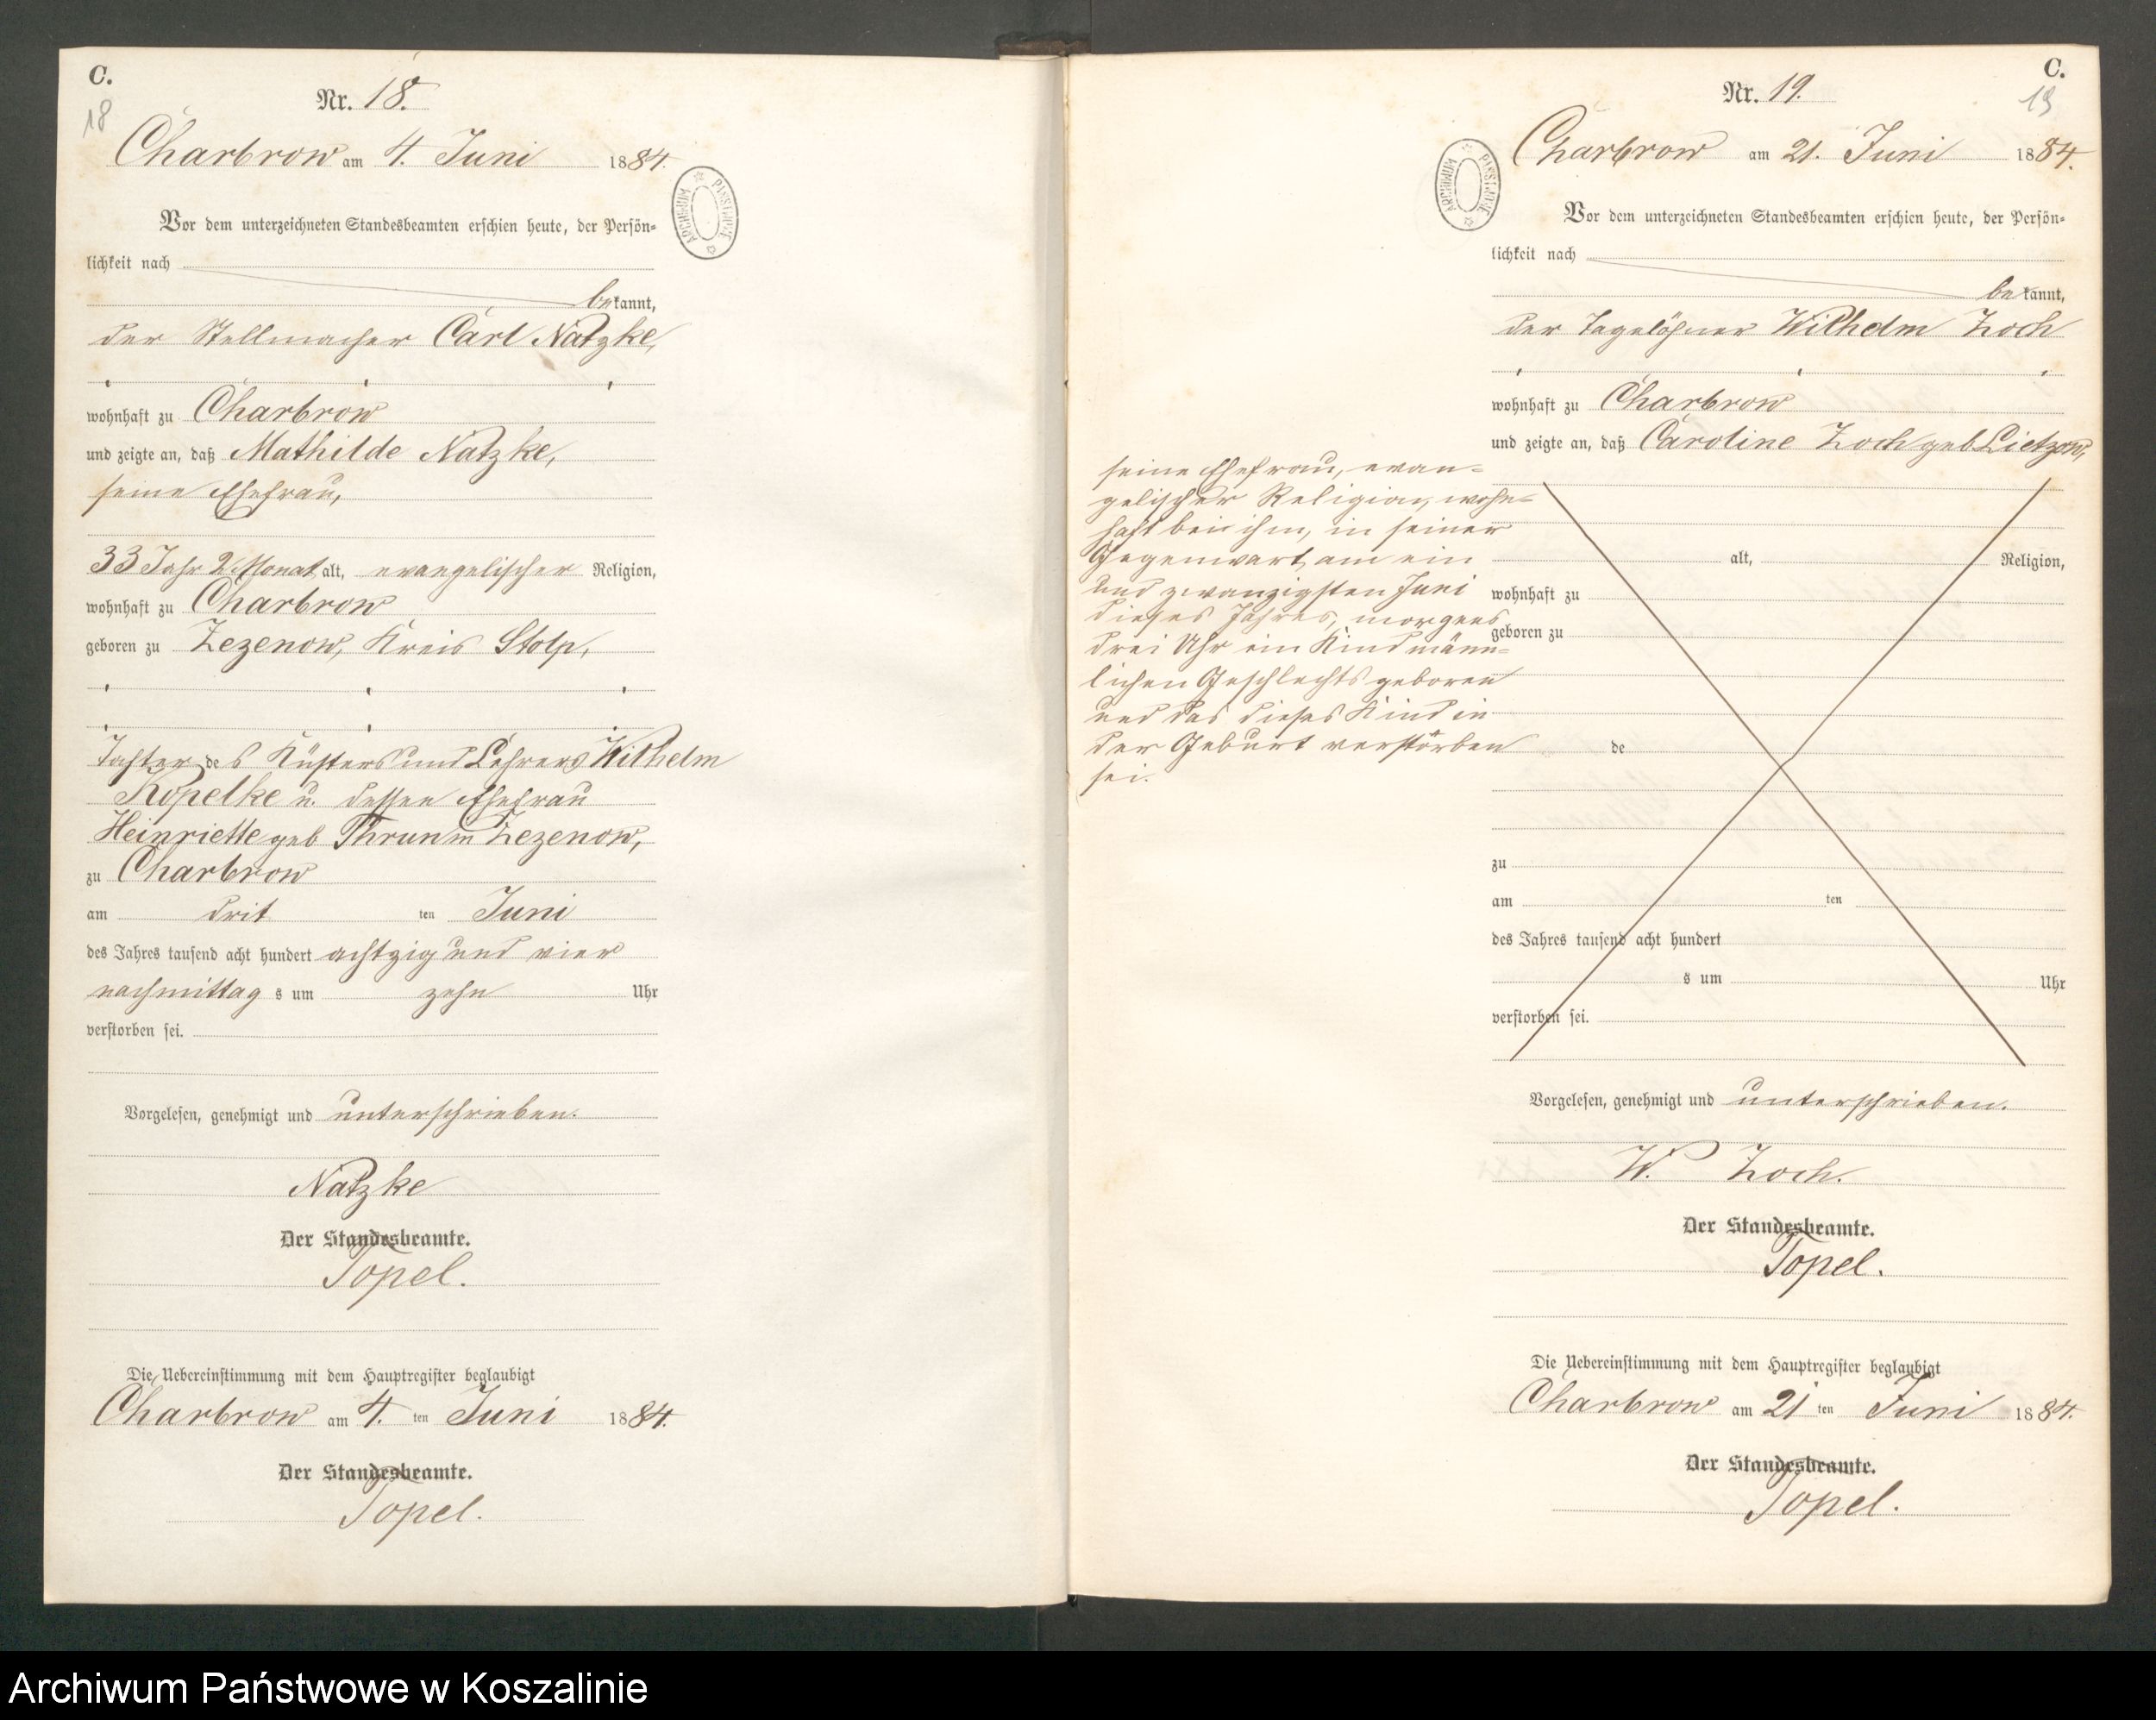 C.
18
Nr. 18.
Charbrow am 4. Juni 1884.
Vor dem unterzeichneten Standesbeamten erschien heute, der Persön-
lichkeit nach
bekannt,
der Stellmacher Carl Natzke,
wohnhaft zu Charbrow
und zeigte an, daß Mathilde Natzke,
seine Ehefrau,
33 Jahr 2 Monat alt, evangelischer Religion,
wohnhaft zu Charbrow
geboren zu Zezenow, Kreis Stolp,
Tochter des Küsters und Lehrers Wilhelm
Kopelke u. dessen Ehefrau
Heinriette geb Thrun in Zezenow,
zu Charbrow
am drit ten Juni
des Jahres tausend acht hundert achtzig und vier
nachmittag s um zehn Uhr
verstorben sei.
Vorgelesen, genehmigt und unterschrieben.
Natzke
Der Standesbeamte.
Topel.
Die Uebereinstimmung mit dem Hauptregister beglaubigt
Charbrow am 4. ten Juni 1884.
Der Standesbeamte.
Topel.
ARCHIWUM PAŃSTWOWE
C.
19
Nr. 19.
Charbrow am 21. Juni 1884.
ARCHIWUM PAŃSTWOWE
Vor dem unterzeichneten Standesbeamten erschien heute, der Persön-
lichkeit nach
bekannt,
der Tagelöhner Wilhelm Zoch
wohnhaft zu Charbrow
und zeigte an, daß Caroline Zoch geb Lietzow,
seine Ehefrau, evan-
gelischer Religion, wohn-
haft bei ihm, in seiner
Gegenwart am ein
und zwanzigsten Juni
dieses Jahres, morgens
drei Uhr ein Kind männ-
lichen Geschlechts geboren
und das dieses Kind in
der Geburt verstorben
sei.
alt, Religion,
wohnhaft zu
geboren zu
de
zu
am ten
des Jahres tausend acht hundert
s um Uhr
verstorben sei.
Vorgelesen, genehmigt und unterschrieben.
W. Zoch.
Der Standesbeamte.
Topel.
Die Uebereinstimmung mit dem Hauptregister beglaubigt
Charbrow am 21 ten Juni 1884.
Der Standesbeamte.
Topel.
Archiwum Państwowe w Koszalinie